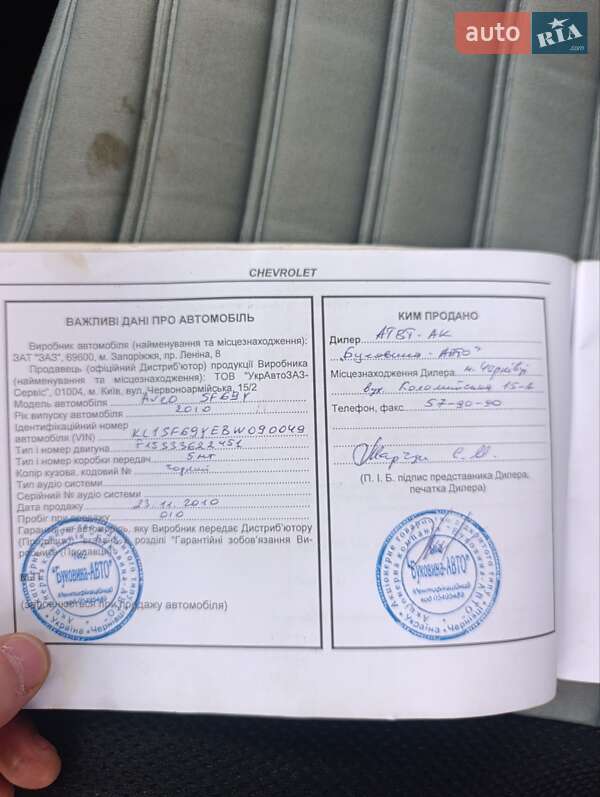 auto RIA.com
CHEVROLET
ВАЖЛИВІ ДАНІ ПРО АВТОМОБІЛЬ
Виробник автомобіля (найменування та місцезнаходження):
ЗАТ "ЗАЗ", 69600, м. Запоріжжя, пр. Леніна, 8
Продавець (офіційний Дистриб'ютор) продукції Виробника
(найменування та місцезнаходження): ТОВ "УкрАвтоЗАЗ-
Сервіс", 01004, м. Київ, вул. Червоноармійська, 15/2
Модель автомобіля Aveo SF69Y
Рік випуску автомобіля 2010
Ідентифікаційний номер
автомобіля (VIN) KL1SF69YEBW090049
Тип і номер двигуна F15S33622451
Тип і номер коробки передач 5МТ
Колір кузова, кодовий № Чорний
Тип аудіо системи
Серійний № аудіо системи
Дата продажу 23.11.2010
Пробіг при продажу 010
Гарантія на автомобіль, яку Виробник передає Дистриб'ютору
(Продавцю), розділі "Гарантійні зобов'язання Ви-
(Продавця)
(заповнюється при продажу автомобіля)
"Буковина-АВТО"
Ідентифікаційний
код 03400688
Україна • Чернівці
КИМ ПРОДАНО
Дилер АТВТ-АК
"Буковина-Авто"
Місцезнаходження Дилера м. Чернівці
вул. Коломийська 15-А
Телефон, факс 57-90-90
(П. І. Б. підпис представника Дилера,
печатка Дилера)
Акціонерна компанія
"Буковина-АВТО"
Ідентифікаційний
код 03400688
Україна • Чернівці